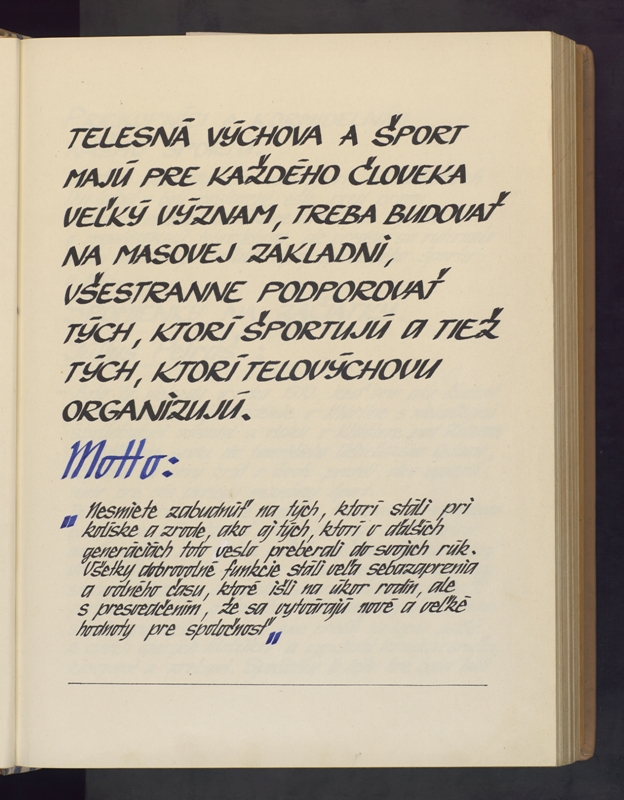 TELESNÁ VÝCHOVA A ŠPORT
MAJÚ PRE KAŽDÉHO ČLOVEKA
VEĽKÝ VÝZNAM, TREBA BUDOVAŤ
NA MASOVEJ ZÁKLADNI,
VŠESTRANNE PODPOROVAŤ
TÝCH, KTORÍ ŠPORTUJÚ A TIEŽ
TÝCH, KTORÍ TELOVÝCHOVU
ORGANIZUJÚ.
Motto:
„Nesmiete zabudnúť na tých, ktorí stáli pri
kolíske a zrode, ako aj tých, ktorí v ďalších
generáciách toto veslo preberali do svojich rúk.
Všetky dobrovolné funkcie stáli veľa sebazaprenia
a volného času, ktoré išli na úkor rodín, ale
s presvedčením, že sa vytvárajú nové a veľké
hodnoty pre spoločnosť"